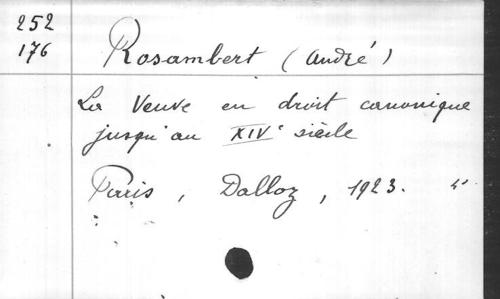 252
176
Rosambert (André)
La Veuve en droit canonique
jusqu'au XIVe siècle
Paris, Dalloz, 1923. 4°